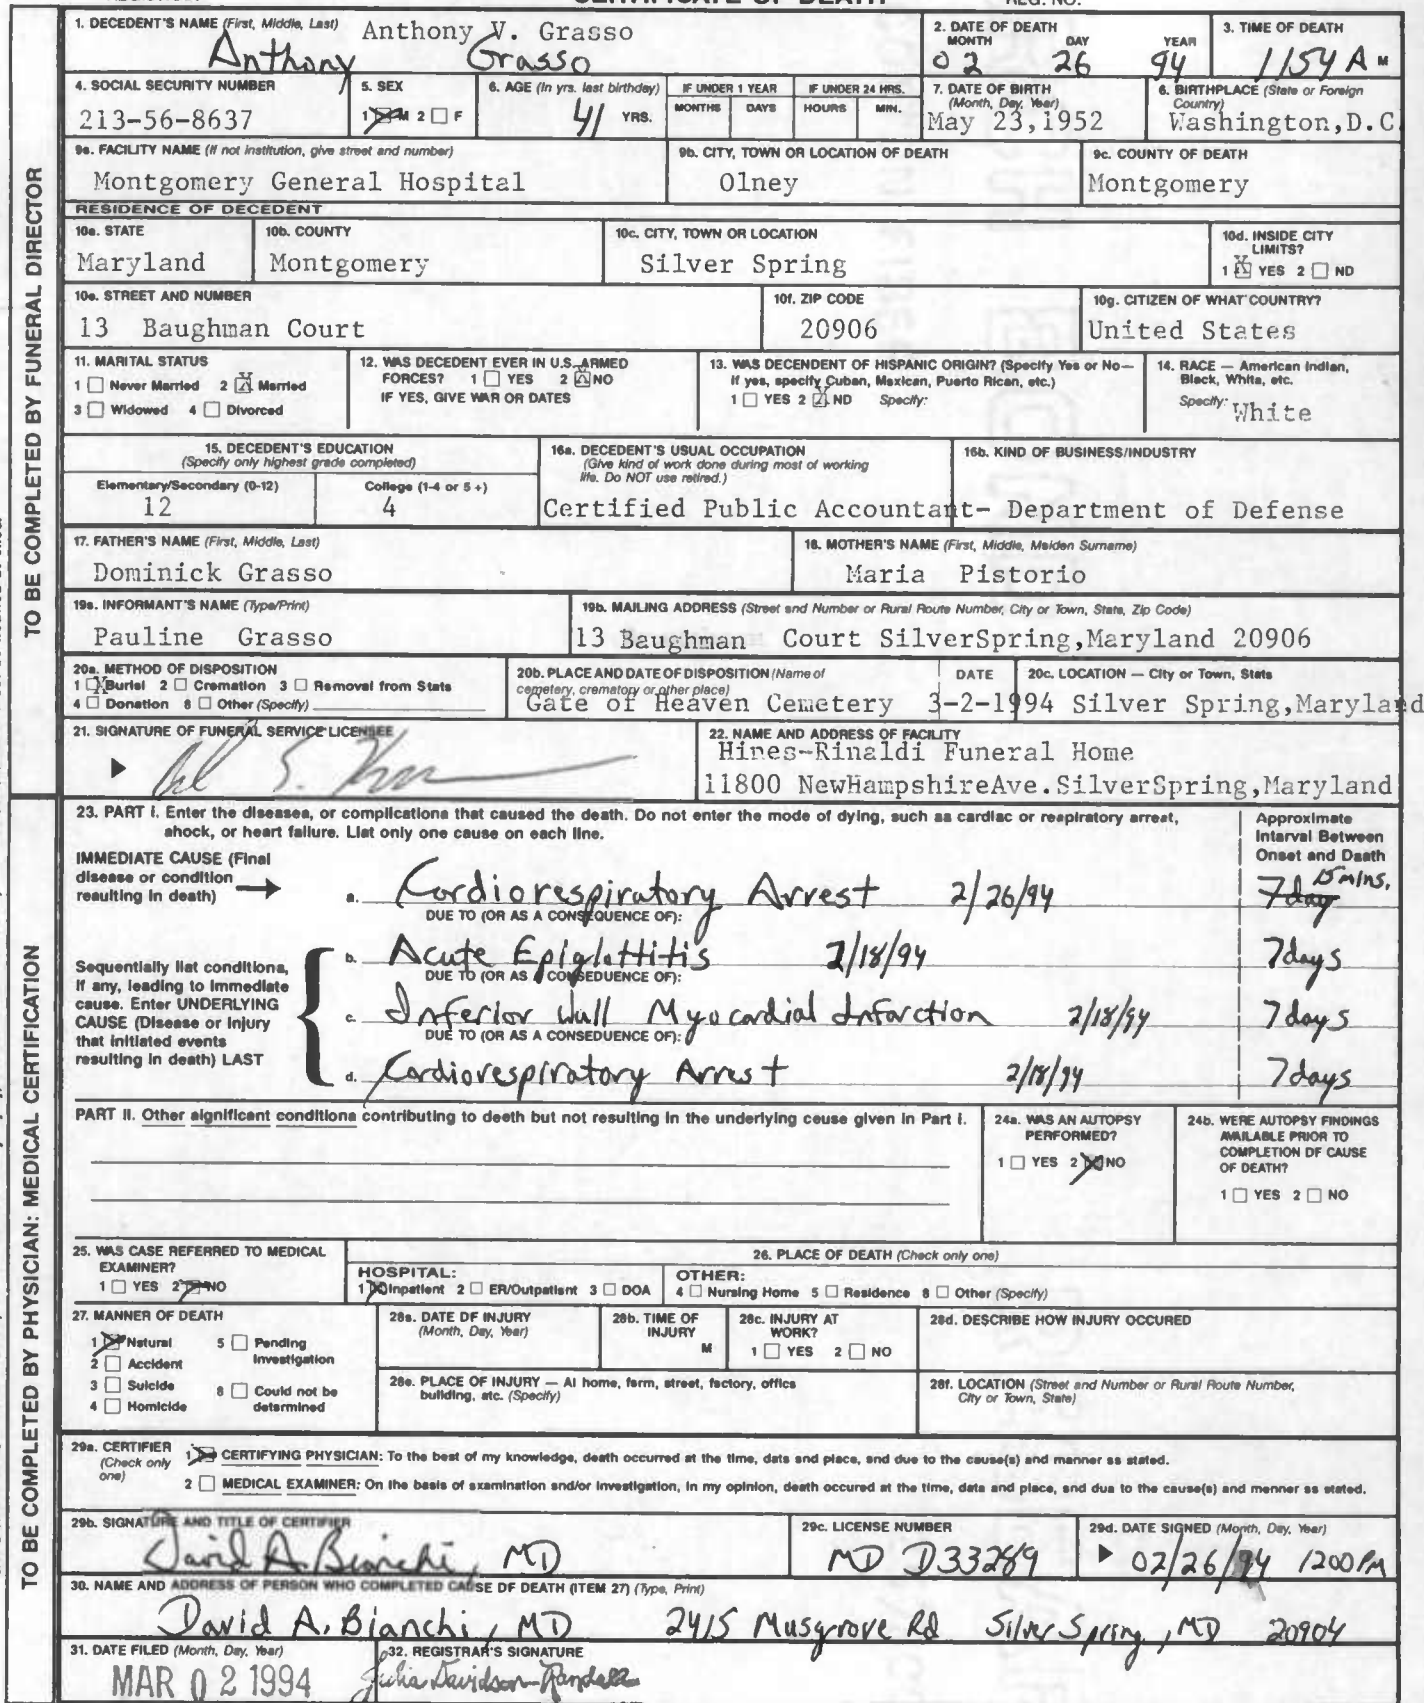 CERTIFICATE OF DEATH
REG. NO.
1. DECEDENT'S NAME (First, Middle, Last) Anthony V. Grasso
Anthony Grasso
2. DATE OF DEATH
MONTH DAY YEAR
02 26 94
3. TIME OF DEATH
1154 A M
4. SOCIAL SECURITY NUMBER
213-56-8637
5. SEX
1 M 2 F
6. AGE (In yrs. last birthday)
41 YRS.
IF UNDER 1 YEAR
MONTHS DAYS
IF UNDER 24 HRS.
HOURS MIN.
7. DATE OF BIRTH
(Month, Day, Year)
May 23,1952
6. BIRTHPLACE (State or Foreign
Country)
Washington,D.C
9a. FACILITY NAME (If not institution, give street and number)
Montgomery General Hospital
9b. CITY, TOWN OR LOCATION OF DEATH
Olney
9c. COUNTY OF DEATH
Montgomery
RESIDENCE OF DECEDENT
10a. STATE
Maryland
10b. COUNTY
Montgomery
10c. CITY, TOWN OR LOCATION
Silver Spring
10d. INSIDE CITY
LIMITS?
1 X YES 2 ND
10e. STREET AND NUMBER
13 Baughman Court
10f. ZIP CODE
20906
10g. CITIZEN OF WHAT COUNTRY?
United States
11. MARITAL STATUS
1 Never Married 2 X Married
3 Widowed 4 Divorced
12. WAS DECEDENT EVER IN U.S. ARMED
FORCES? 1 YES 2 X NO
IF YES, GIVE WAR OR DATES
13. WAS DECENDENT OF HISPANIC ORIGIN? (Specify Yes or No—
If yes, specify Cuban, Mexican, Puerto Rican, etc.)
1 YES 2 X ND Specify:
14. RACE — American Indian,
Black, White, etc.
Specify: White
15. DECEDENT'S EDUCATION
(Specify only highest grade completed)
Elementary/Secondary (0-12) College (1-4 or 5 +)
12 4
16a. DECEDENT'S USUAL OCCUPATION
(Give kind of work done during most of working
life. Do NOT use retired.)
16b. KIND OF BUSINESS/INDUSTRY
Certified Public Accountant- Department of Defense
17. FATHER'S NAME (First, Middle, Last)
Dominick Grasso
18. MOTHER'S NAME (First, Middle, Maiden Surname)
Maria Pistorio
19a. INFORMANT'S NAME (Type/Print)
Pauline Grasso
19b. MAILING ADDRESS (Street and Number or Rural Route Number, City or Town, State, Zip Code)
13 Baughman Court SilverSpring,Maryland 20906
20a. METHOD OF DISPOSITION
1 X Burial 2 Cremation 3 Removal from State
4 Donation 8 Other (Specify)
20b. PLACE AND DATE OF DISPOSITION (Name of
cemetery, crematory or other place)
DATE
20c. LOCATION — City or Town, State
Gate of Heaven Cemetery 3-2-1994 Silver Spring,Maryland
21. SIGNATURE OF FUNERAL SERVICE LICENSEE
22. NAME AND ADDRESS OF FACILITY
Hines-Rinaldi Funeral Home
11800 NewHampshireAve.SilverSpring,Maryland
TO BE COMPLETED BY FUNERAL DIRECTOR
23. PART I. Enter the diseases, or complications that caused the death. Do not enter the mode of dying, such as cardiac or respiratory arrest,
shock, or heart failure. List only one cause on each line.
Approximate
Interval Between
Onset and Death
IMMEDIATE CAUSE (Final
disease or condition
resulting in death)
a. Cardiorespiratory Arrest 2/26/94 7 day 15 mins.
DUE TO (OR AS A CONSEQUENCE OF):
Sequentially list conditions,
if any, leading to immediate
cause. Enter UNDERLYING
CAUSE (Disease or injury
that initiated events
resulting in death) LAST
b. Acute Epiglottitis 2/18/94 7 days
DUE TO (OR AS A CONSEDUENCE OF):
c. Inferior Wall Myocardial Infarction 2/18/94 7 days
DUE TO (OR AS A CONSEDUENCE OF):
d. Cardiorespiratory Arrest 2/18/94 7 days
PART II. Other significant conditions contributing to death but not resulting in the underlying cause given in Part I.
24a. WAS AN AUTOPSY
PERFORMED?
1 YES 2 X NO
24b. WERE AUTOPSY FINDINGS
AVAILABLE PRIOR TO
COMPLETION DF CAUSE
OF DEATH?
1 YES 2 NO
25. WAS CASE REFERRED TO MEDICAL
EXAMINER?
1 YES 2 NO
26. PLACE OF DEATH (Check only one)
HOSPITAL:
1 X Inpatient 2 ER/Outpatient 3 DOA
OTHER:
4 Nursing Home 5 Residence 8 Other (Specify)
27. MANNER OF DEATH
1 Natural 5 Pending
Investigation
2 Accident
3 Suicide 8 Could not be
determined
4 Homicide
28a. DATE DF INJURY
(Month, Day, Year)
28b. TIME OF
INJURY
M
28c. INJURY AT
WORK?
1 YES 2 NO
28d. DESCRIBE HOW INJURY OCCURED
28e. PLACE OF INJURY — At home, farm, street, factory, office
building, etc. (Specify)
28f. LOCATION (Street and Number or Rural Route Number,
City or Town, State)
29a. CERTIFIER
(Check only
one)
1 CERTIFYING PHYSICIAN: To the best of my knowledge, death occurred at the time, date and place, and due to the cause(s) and manner as stated.
2 MEDICAL EXAMINER: On the basis of examination and/or investigation, in my opinion, death occured at the time, data and place, and due to the cause(s) and manner as stated.
29b. SIGNATURE AND TITLE OF CERTIFIER
David A. Bianchi, MD
29c. LICENSE NUMBER
MD D33289
29d. DATE SIGNED (Month, Day, Year)
02/26/94 1200 PM
30. NAME AND ADDRESS OF PERSON WHO COMPLETED CAUSE DF DEATH (ITEM 27) (Type, Print)
David A. Bianchi, MD 2415 Musgrove Rd Silver Spring, MD 20904
31. DATE FILED (Month, Day, Year)
MAR 02 1994
32. REGISTRAR'S SIGNATURE
Julia Davidson-Randall
TO BE COMPLETED BY PHYSICIAN: MEDICAL CERTIFICATION